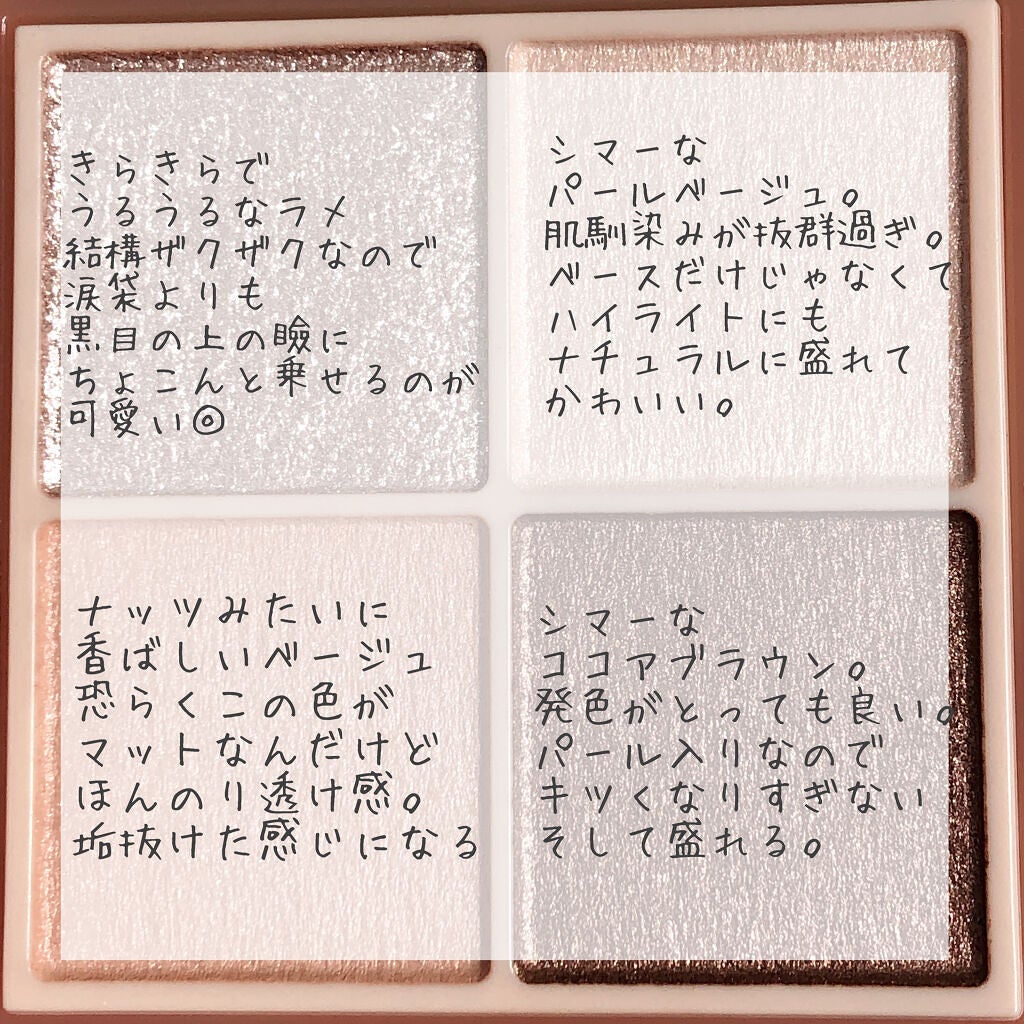 きらきらで
うるうるなラメ
結構ザクザクなので
涙袋よりも
黒目の上の瞼に
ちょこんと乗せるのが
可愛い◎
シマーな
パールベージュ。
肌馴染みが抜群過ぎ。
ベースだけじゃなくて
ハイライトにも
ナチュラルに盛れて
かわいい。
ナッツみたいに
香ばしいベージュ
恐らくこの色が
マットなんだけど
ほんのり透け感。
垢抜けた感じになる
シマーな
ココアブラウン。
発色がとっても良い。
パール入りなので
キツくなりすぎない
そして盛れる。